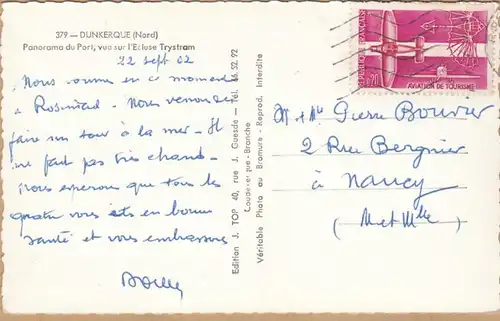 379 — DUNKERQUE (Nord)
Panorama du Port, vue sur l'Ecluse Trystram
22 sept 62
Nous sommes en ce moment
à Nous venons
faire un tour à la mer - Il
ne fait pas très chaud -
nous esperons que tous les
quatre vous êtes en bonne
santé et vous embrassons
Edition J. TOP 40, rue J. Guesde — Tél. 66.52.92
Coudekerque-Branche
Véritable Photo au Bromure - Reprod. Interdite
REPUBLIQUE FRANÇAISE
0,20
AVIATION DE TOURISME
M + Me Pierre Bouvier
2 Rue Bergnier
à Nancy
(M et Mlle